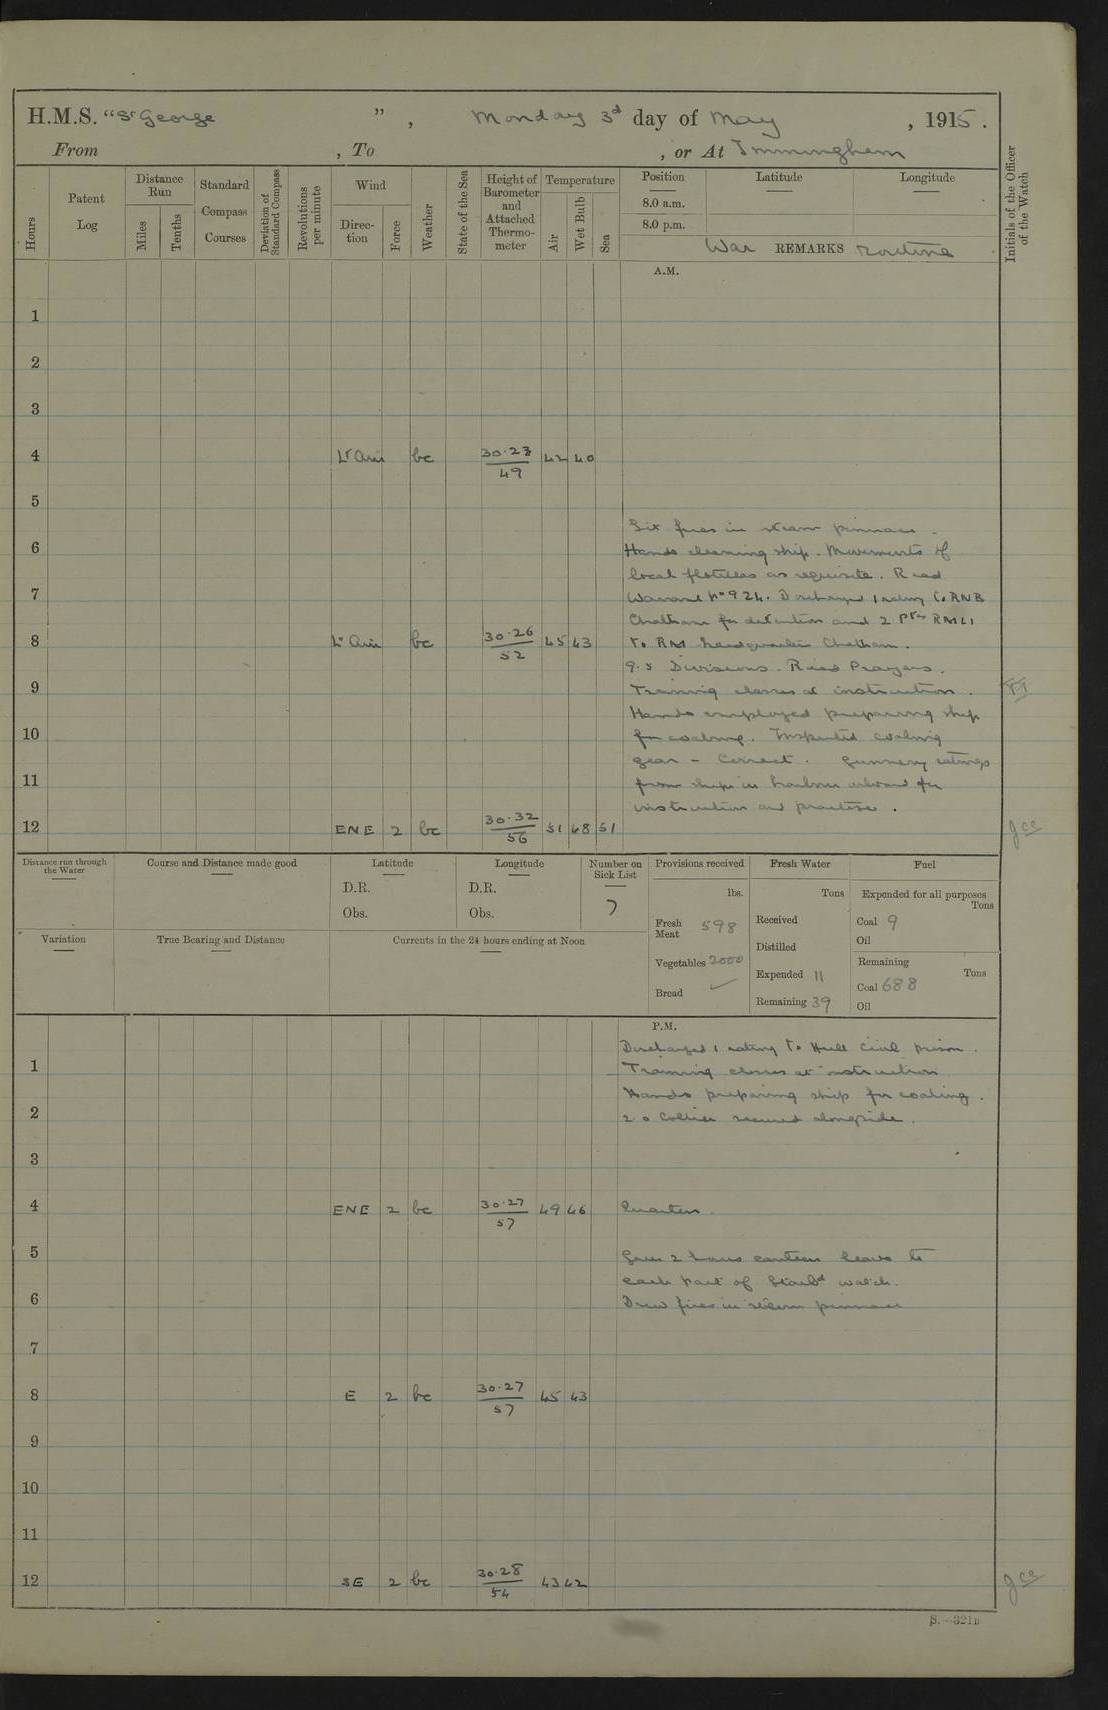 H.M.S. "St George ", Monday 3d day of May , 1915.
From , To , or At Immingham
Hours
Patent Log
Distance Run
Miles
Tenths
Standard Compass Courses
Deviation of Standard Compass
Revolutions per minute
Wind
Direction
Force
Weather
State of the Sea
Height of Barometer and Attached Thermometer
Temperature
Air
Wet Bulb
Sea
Position
8.0 a.m.
8.0 p.m.
Latitude
Longitude
Initials of the Officer of the Watch
War REMARKS routine
A.M.
1
2
3
4 Lt Airs bc 30.23/49 42 40
5
Lit fires in steam pinnace.
6 Hands cleaning ship. Movements of
local flotillas as requisite. Read
7 Warrant No 924. Discharged 1 rating to RNB
Chatham for detention and 2 Ptes RMLI
8 Lt Airs bc 30.26/52 45 43 to RM headquarters Chatham.
9.5 Divisions. Read Prayers.
9 Training classes at instruction.
Hands employed preparing ship
10 for coaling. Inspected coaling
gear - Correct. Gunnery ratings
11 from ships in harbour onboard for
instruction and practise.
12 ENE 2 bc 30.32/56 51 48 51
Distance run through the Water
Course and Distance made good
Latitude
D.R.
Obs.
Longitude
D.R.
Obs.
Number on Sick List
7
Provisions received
lbs.
Fresh Meat 598
Vegetables 2000
Bread ✓
Fresh Water
Tons
Received
Distilled
Expended 11
Remaining 39
Fuel
Expended for all purposes
Tons
Coal 9
Oil
Remaining
Tons
Coal 688
Oil
Variation
True Bearing and Distance
Currents in the 24 hours ending at Noon
P.M.
Discharged 1 rating to Hull Civil prison.
1 Training classes at instruction
Hands preparing ship for coaling.
2 2.0 Collier secured alongside.
3
4 ENE 2 bc 30.27/57 49 46 Quarters.
5 Gave 2 hours canteen leave to
each part of Starbd watch.
6 Drew fires in steam pinnace
7
8 E 2 bc 30.27/57 45 43
9
10
11
12 SE 2 bc 30.28/54 43 42
S.-321B